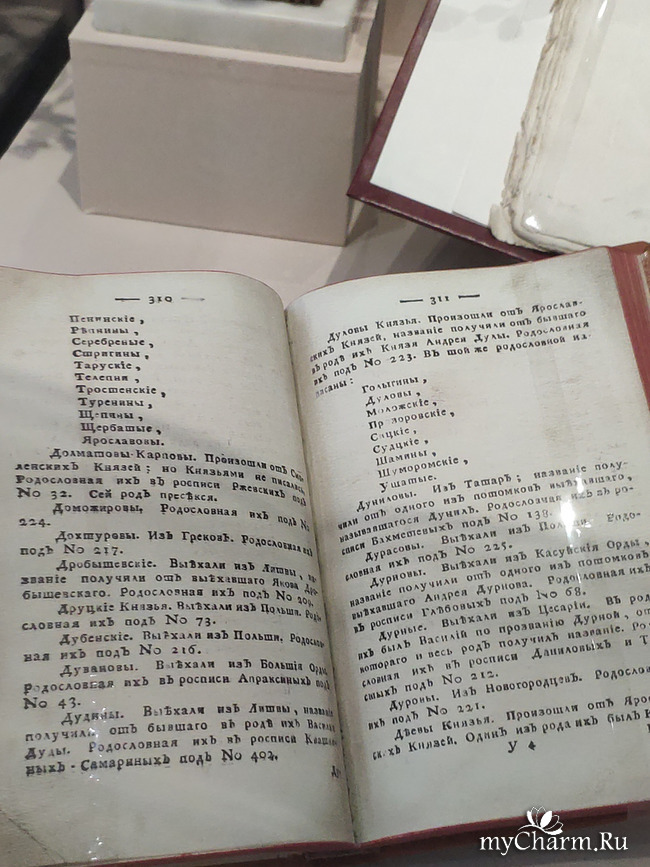 — 310 —
Пенинскіе,
Рѣпнины,
Серебреные,
Стригины,
Тарускіе,
Телепня,
Тростенскіе,
Туренины,
Щепины,
Щербатые,
Ярославовы.
Долматовы-Карповы. Произошли отъ Смо
ленскихъ Князей; но Князьями не писались.
Родословная ихъ въ росписи Ржевскихъ подъ
No 32. Сей родъ пресѣкся.
Доможировы. Родословная ихъ подъ No
224.
Дохтуровы. Изъ Грековъ. Родословная ихъ
подъ No 217.
Дробышевские. Выѣхали изъ Литвы, на
званіе получили отъ выѣхавшаго Якова Дро
бышевскаго. Родословная ихъ подъ No 209.
Друцкіе Князья. Выѣхали изъ Польши. Родо
словная ихъ подъ No 73.
Дубенскіе. Выѣхали изъ Польши. Родослов
ная ихъ подъ No 216.
Дувановы. Выѣхали изъ Большія Орды.
Родословная ихъ въ росписи Апраксиныхъ подъ
No 43.
Дудины. Выѣхали изъ Литвы, названіе
получили отъ бывшаго въ родѣ ихъ Василія
Дуды. Родословная ихъ въ росписи Квашни
ныхъ-Самариныхъ подъ No 402.
— 311 —
Дуловы Князья. Произошли отъ Ярослав-
скихъ Князей, названіе получили отъ бывшаго
въ родѣ ихъ Князя Андрея Дулы. Родословная
ихъ подъ No 223. Въ той же родословной на-
писаны:
Голыгины,
Дуловы,
Моложскіе,
Прозоровскіе,
Сицкіе,
Судцкіе,
Шамины,
Шуморомскіе,
Ушатые.
Дуниловы. Изъ Татаръ; название полу-
чили отъ одного изъ потомковъ выѣхавшаго,
называвшагося Дунилъ. Родословная ихъ въ ро-
списи Бахметевыхъ подъ No 138.
Дурасовы. Выѣхали изъ Польши. Родо-
словная ихъ подъ No 225.
Дурновы. Выѣхали изъ Касуйскія Орды,
названіе получили отъ одного изъ потомковъ
выѣхавшаго Андрея Дурнова. Родословная ихъ
въ росписи Глѣбовыхъ подъ No 68.
Дурные. Выѣхали изъ Цесаріи. Въ родѣ
ихъ былъ Василій по прозванію Дурной, отъ
котораго и весь родъ получилъ названіе. Ро
словная ихъ въ росписи Даниловыхъ и Т
стыхъ подъ No 212.
Дуровы. Изъ Новогородцевъ. Родослов
ихъ подъ No 221.
Дѣевы Князья. Произошли отъ Ярос
скихъ Князей. Одинъ изъ рода ихъ былъ К
У 4
myCharm.Ru